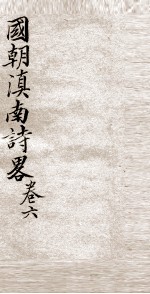 國朝滇南詩畧卷六